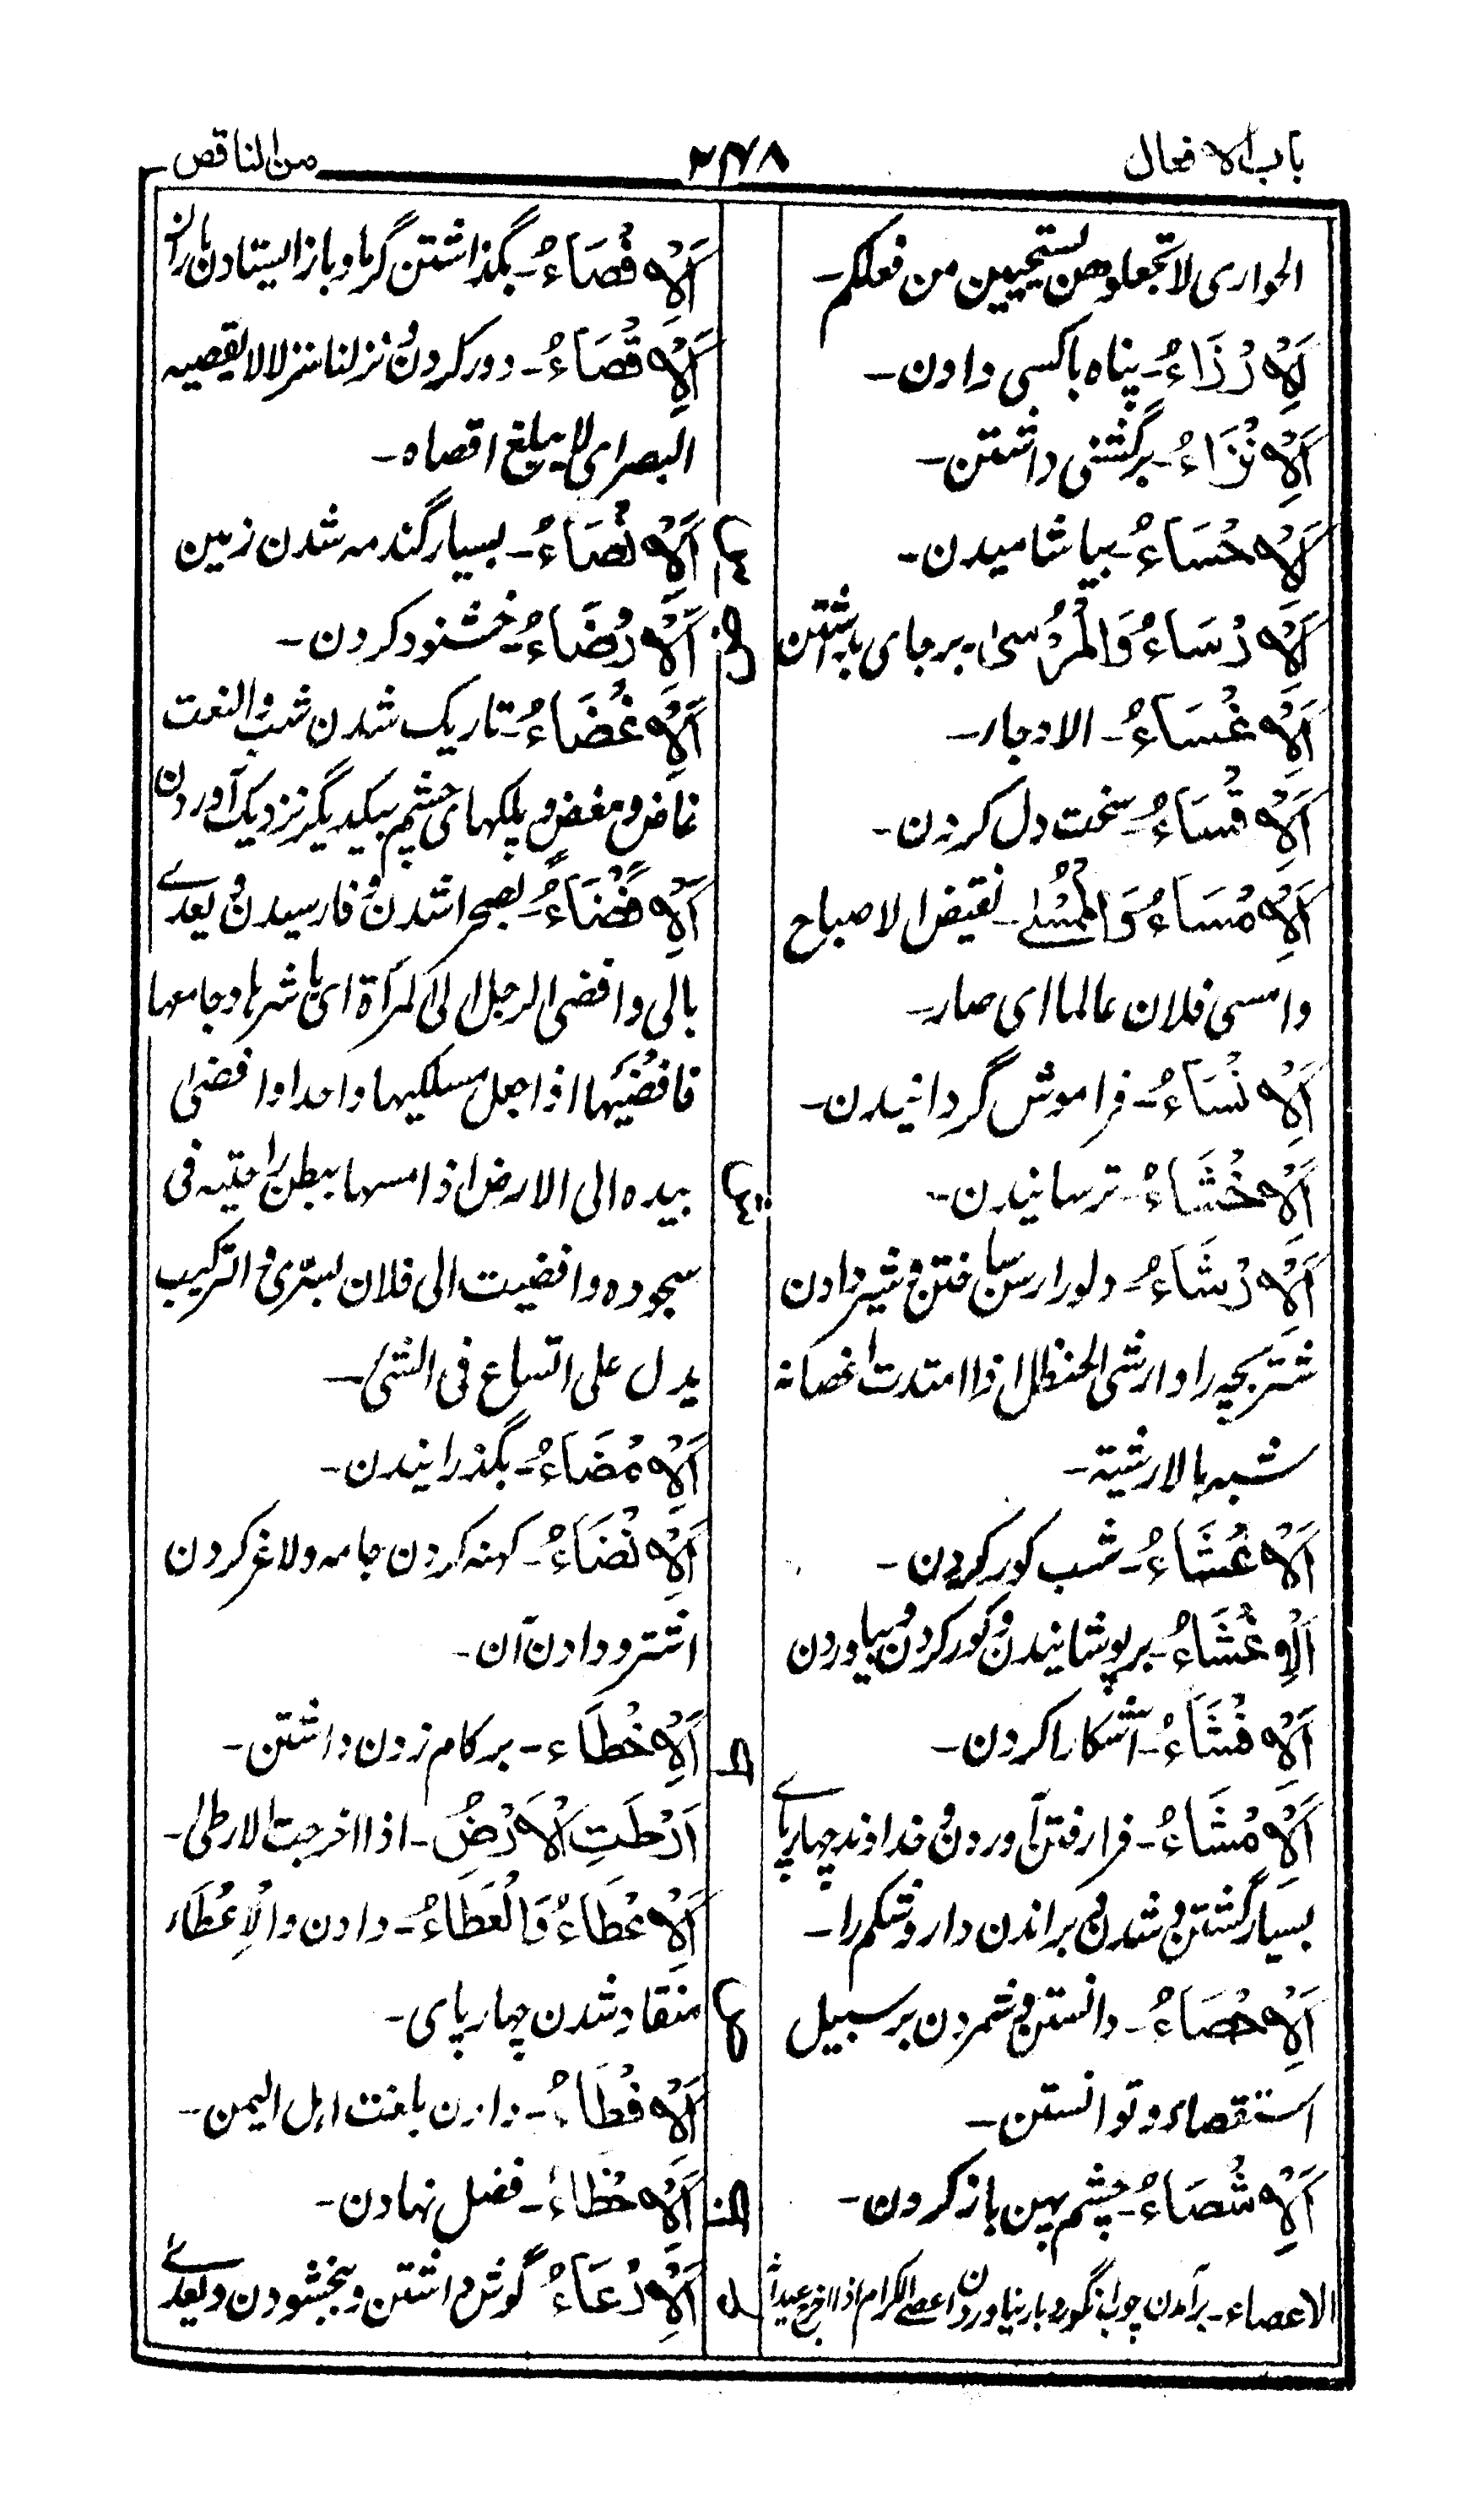 باب الافعال
۲۳۸
من الناقص
الجواری لا تجعلوهن یستحیین من فعلکم۔
اَلْاِرْذَاءُ۔ پناه باکسی دادن۔
اَلْاِنْزَاءُ۔ برگشنی داشتن۔
اَلْاِحْسَاءُ۔ بیاشامیدن۔
اَلْاِرْسَاءُ وَالْمُرْسیٰ۔ برجای بداشتن
اَلْاِغْسَاءُ۔ الادجار۔
اَلْاِقْسَاءُ۔ سخت دل کردن۔
اَلْاِمْسَاءُ وَالْمُمْسٰے۔ نقیض الاصباح
وامسی فلان عالما ای صار۔
اَلْاِنْسَاءُ۔ فراموش گردانیدن۔
اَلْاِخْشَاءُ۔ ترسانیدن۔
اَلْاِرْشَاءُ۔ دلو را رسن ساختن و شیر دادن
شتربچه را وارشی الحنظل اذا امتدت اغصانه
شبه بالارشیة۔
اَلْاِعْشَاءُ۔ شب کور کردن۔
اَلْاِغْشَاءُ۔ برپوشانیدن و کور کردن و بیاوردن
اَلْاِفْشَاءُ۔ آشکارا کردن۔
اَلْاِمْشَاءُ۔ فرا رفتن آوردن و خداوند چهارپاے
بسیار گشتن و شدن و براندن دارو شکم را۔
اَلْاِحْصَاءُ۔ دانستن و شمردن برسبیل
استقصاء و توانستن۔
اَلْاِشْصَاءُ۔ چشم پهن باز کردن۔
الاعصاء۔ برآمدن چوب انگور و بار نیاوردن اعصی الکرم اذا اخرج عیدانه
اَلْاِفْصَاءُ۔ بگذاشتن گرما و باز ایستادن باران
اَلْاِقْصَاءُ۔ دور کردن و نزلنا منزلا لا یقصیه
البصر ای لا یبلغ اقصاه۔
اَلْاِنْصَاءُ۔ بسیار گندمه شدن زمین
اَلْاِرْضَاءُ۔ خشنود کردن۔
اَلْاِغْضَاءُ۔ تاریک شدن شب والنعت
غاض و مغض و پلکهای چشم بیکدیگر نزدیک آوردن
اَلْاِفْضَاءُ۔ بصحرا شدن و فارسیدن و یعدے
بالی وافضی الرجل الی المرأة ای باشرها وجامعها
فافضیها اذا جعل مسلکیها واحدا وافضی
بیده الی الارض اذا مسها ببطن راحتیه فی
سجوده وافضیت الی فلان بسرّی والترکیب
یدل علی اتساع فی الشیٔ۔
اَلْاِمْضَاءُ۔ بگذرانیدن۔
اَلْاِنْضَاءُ۔ کهنه کردن جامه و لاغر کردن
اشتر و دادن آن۔
اَلْاِخْطَاء۔ بر کام زدن داشتن۔
اَرْطَتِ الْاَرْضُ۔ اذا اخرجت الارطی۔
اَلْاِعْطَاءُ وَالْعَطَاءُ۔ دادن والْاِعْطَاء
منقاد شدن چهارپای۔
اَلْاِفْطَاءُ۔ دادن بلغت اهل الیمن۔
اَلْاِحْظَاءُ۔ فضل نهادن۔
اَلْاِرْعَاءُ گوش داشتن و بخشودن و یعدے